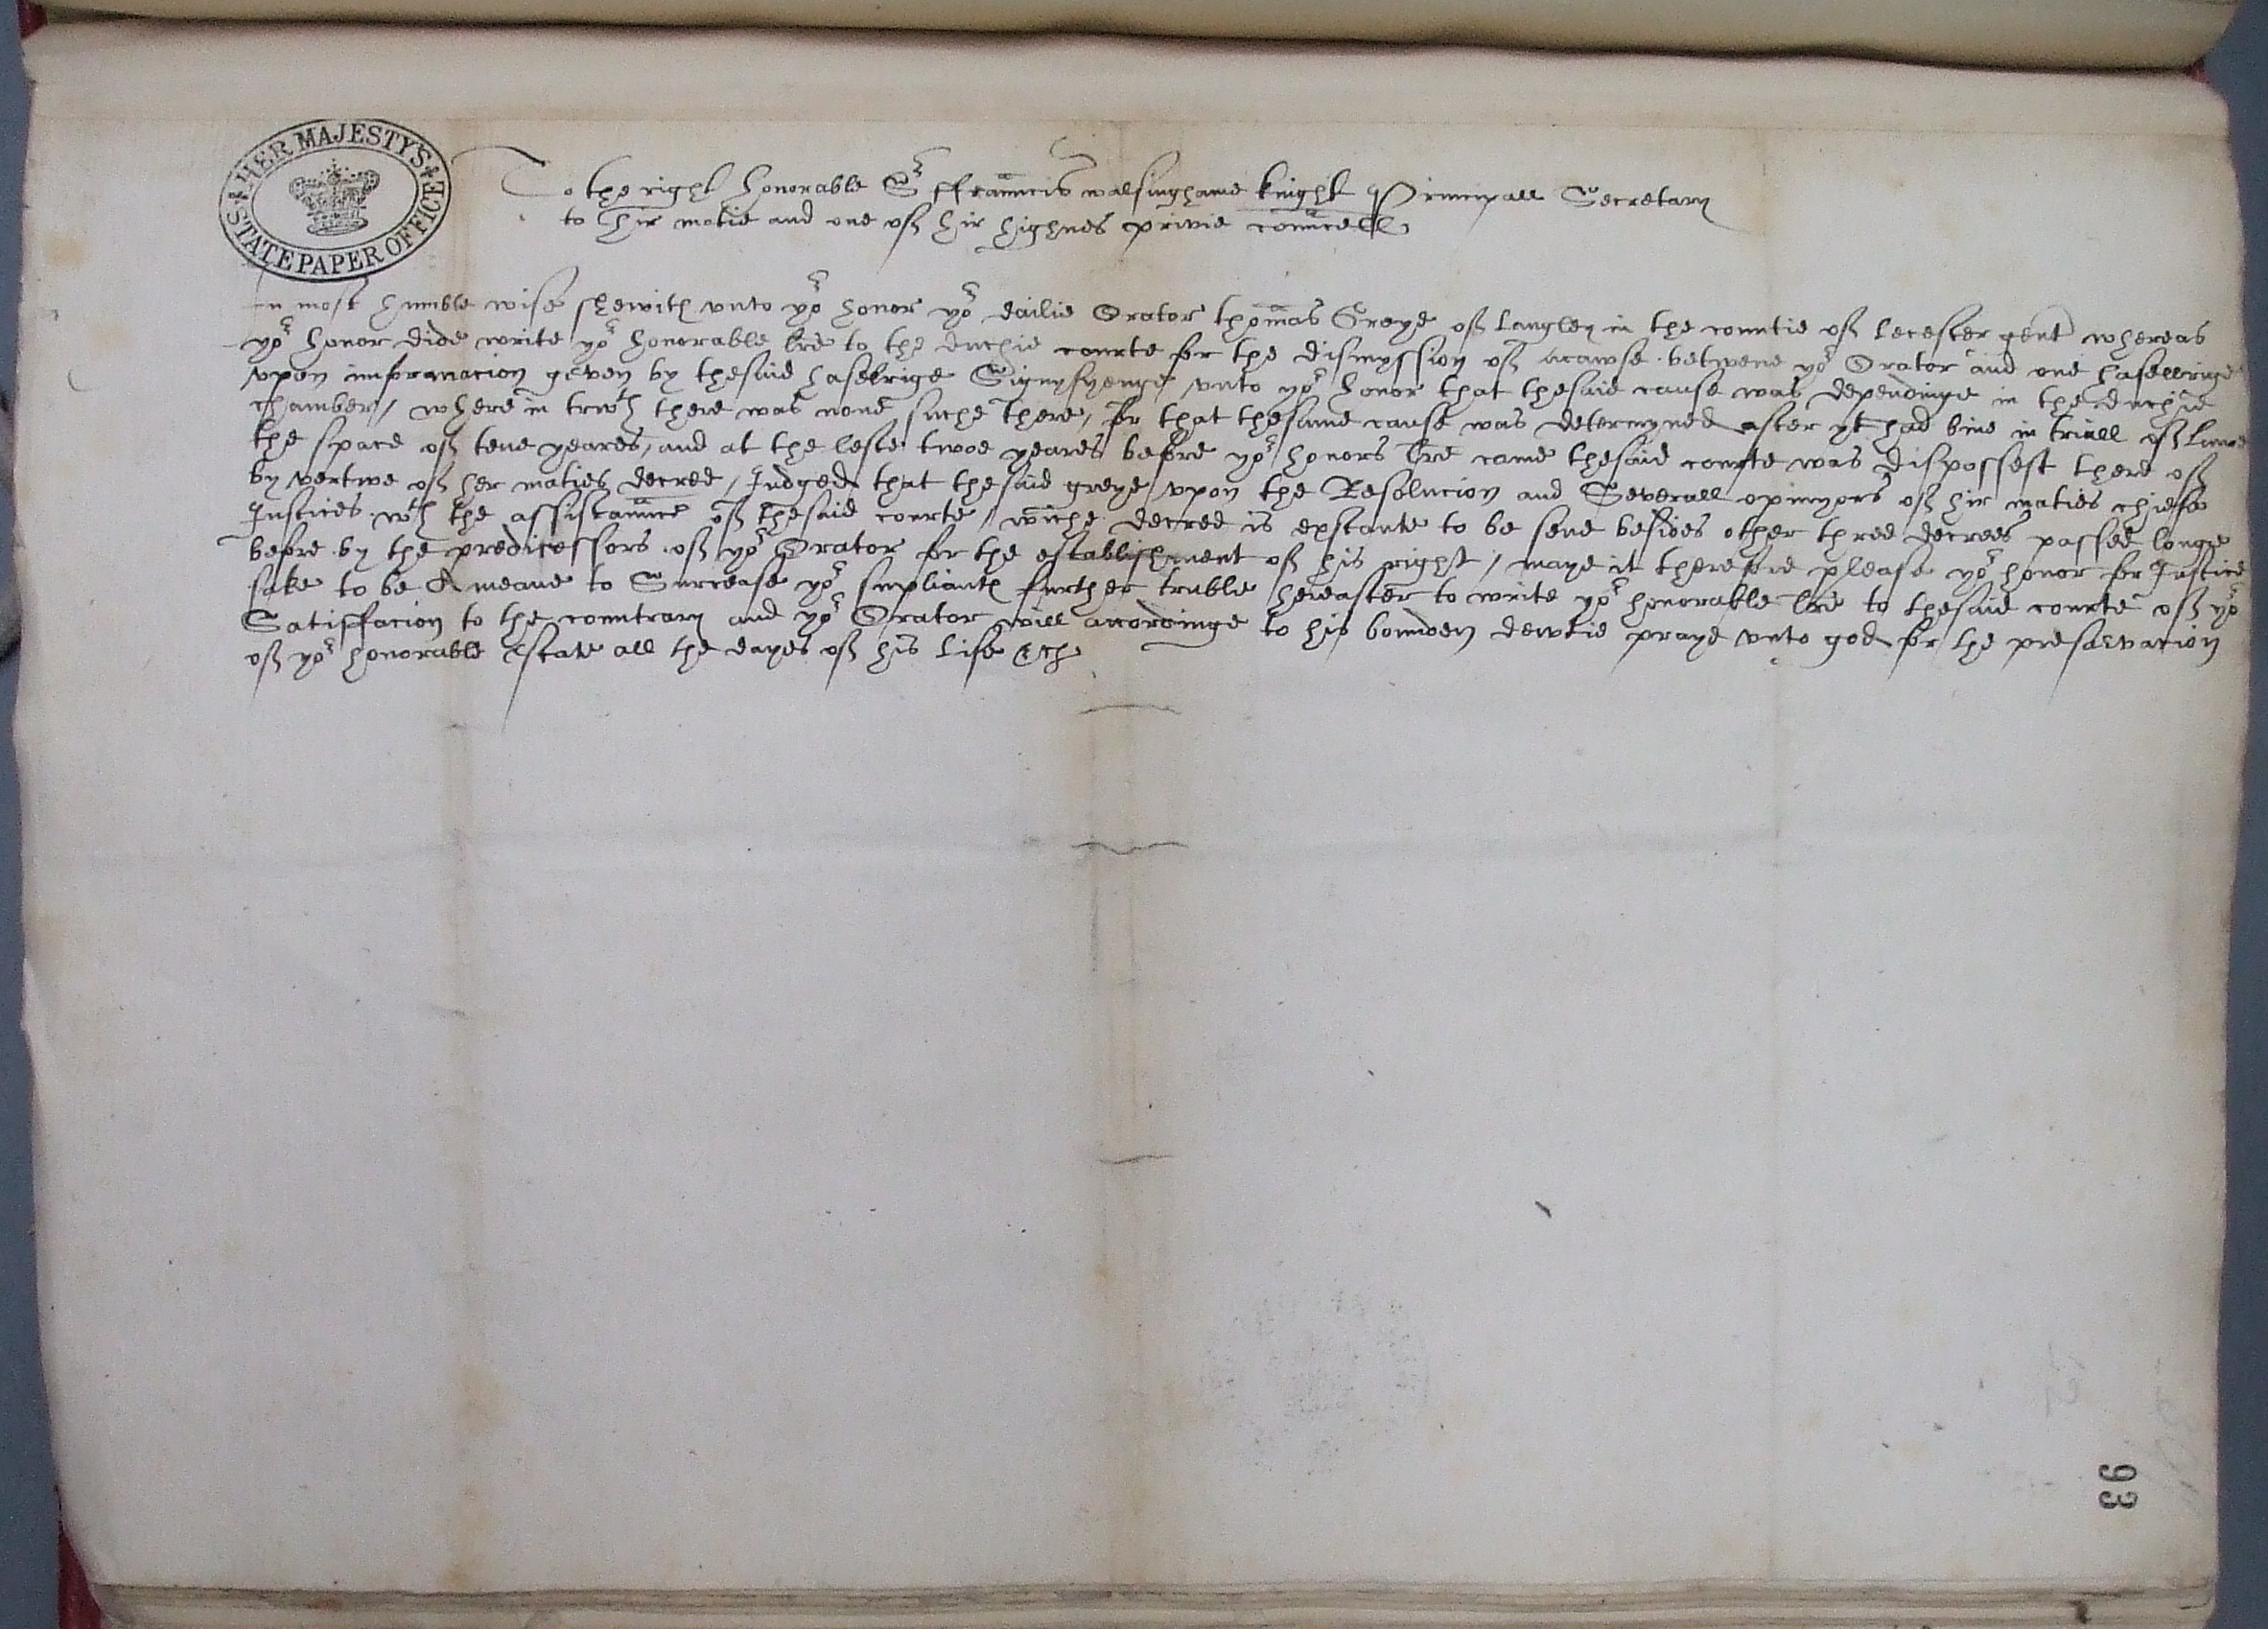 HER MAJESTY'S STATE PAPER OFFICE
To the right honorable Sr ffrauncis walsinghame knight Principall Secretary
to hir matie and one off hir highnes privie councell
In most humble wise shewith vnto yor honor yor dailie Orator thomas Greye off langley in the countie off lecester gent whereas
yor honor dide write yor honorable lre to the duchie courte for the dismyssion off acawse betwene yor Orator and one hasellrige
vpon informacion geven by thesaid haselrige Signyfyenge vnto yor honor that thesaid cause was dependinge in the duchie
chamber / where in trwth there was none suche there / for that thesame cause was determyned after yt had bine in triall off lawe
the space off tene yeares, and at the leste twoe yeares before yor honors lre came thesaid courte was dispossest there off
by vertwe off her maties decree / Judged that thesaid greye vpon the Resolucion and Severall opinyons off hir maties chiefe
Justices wth the assistaunce off thesaid courte / wiche decree is exstante to be sene besides other three decrees passed longe
before by the predicessors off yor Orator for the establishment off his right / maye it therefore please yor honor for Justice
sake to be A meane to Surcease yor supliantes further truble hereafter to write yor honorable lre to thesaid courte off yor
Satisffacion to the countrary and yor Orator will accordinge to his bownden dewtie praye vnto god for the preservacion
off yor honorable estate all the dayes off his life &c
93